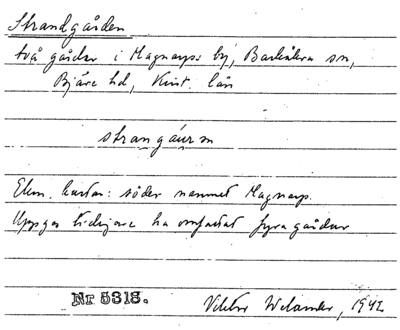 Strandgården
två gårdar i Magnarps by, Barkåkra sn,
Bjäre hd, Krist. län
strangáurn
Ekon. kartan: söder namnet Magnarp.
Uppges tidigare ha omfattat fyra gårdar
Nr 5318.
Viktor Welander, 1942